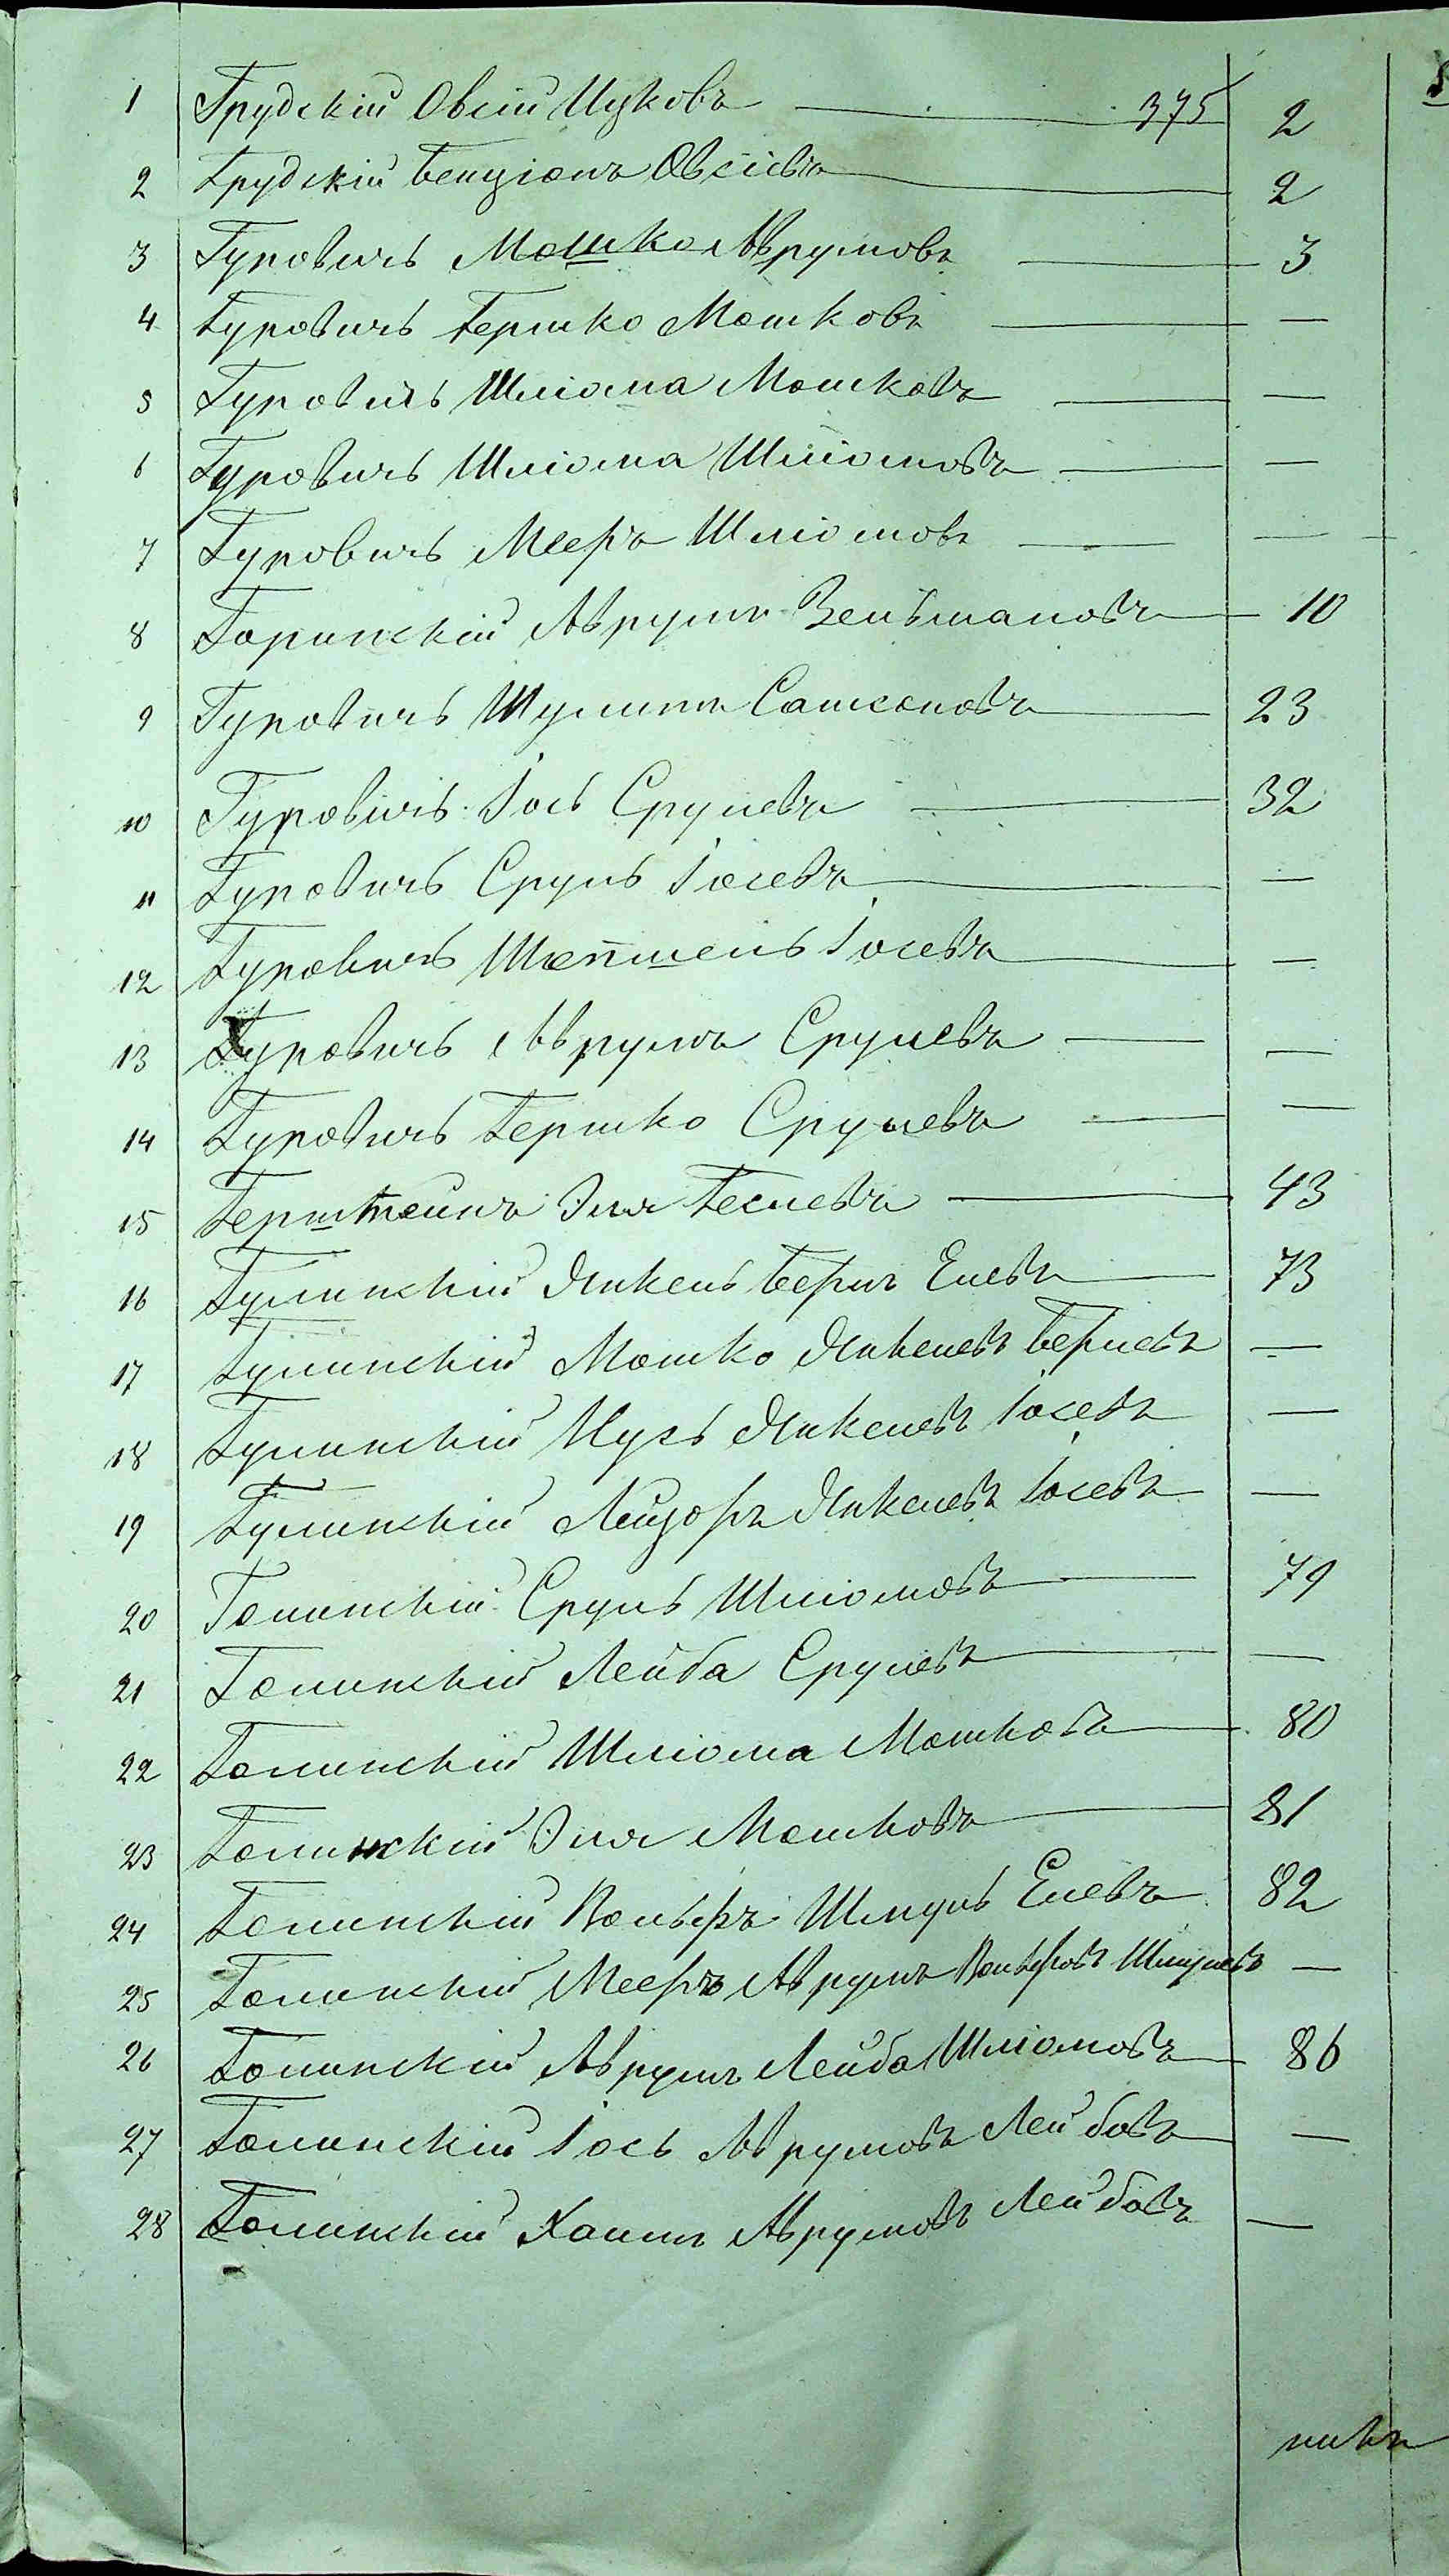 1 Грудскій Овсій Ицковъ 375 2
2 Грудскій Бенціонъ Овсіевъ 2
3 Гуровичъ Мошко Аврумовъ 3
4 Гуровичъ Гершко Мошковъ —
5 Гуровичъ Шліома Мошковъ —
6 Гуровичъ Шліома Шліомовъ —
7 Гуровичъ Мееръ Шліомовъ —
8 Горинскій Аврумъ Зельмановъ 10
9 Гуровичъ Шулимъ Самсоновъ 23
10 Гуровичъ Іось Срулевъ 32
11 Гуровичъ Сруль Іосевъ —
12 Гуровичъ Шепшель Іосевъ —
13 Гуровичъ Аврумъ Срулевъ —
14 Гуровичъ Гершко Срулевъ —
15 Герштейнъ Эля Геселевъ 43
16 Гулинскій Янкель Беръ Елевъ 73
17 Гулинскій Мошко Янкелевъ Беревъ —
18 Гулинскій Нусь Янкелевъ Іосевъ —
19 Гулинскій Лейзоръ Янкелевъ Іосевъ —
20 Голинскій Сруль Шліомовъ 79
21 Голинскій Лейба Срулевъ —
22 Голинскій Шліома Мошковъ 80
23 Голинскій Эля Мошковъ 81
24 Голинскій Вольфъ Шмуль Елевъ 82
25 Голинскій Мееръ Аврумъ Вольфовъ Шмулевъ —
26 Голинскій Аврумъ Лейба Шліомовъ 86
27 Голинскій Іось Аврумовъ Лейбовъ —
28 Голинскій Хаимъ Аврумовъ Лейбовъ —